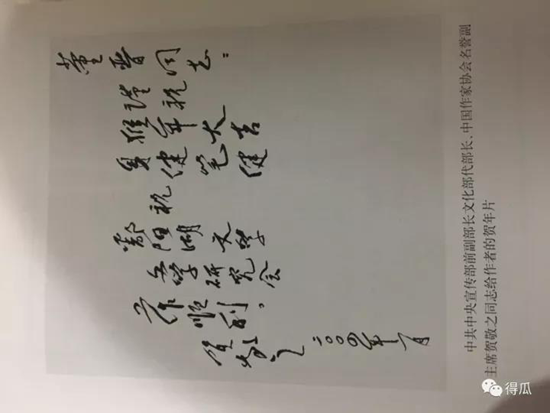 董晋同志：
谨祝
猴年大吉
身健笔健
祝
鄱阳湖文学
研究会
工作顺利。
贺敬之
二〇〇四年一月
中共中央宣传部前副部长文化部代部长、中国作家协会名誉副
主席贺敬之同志给作者的贺年片
得瓜